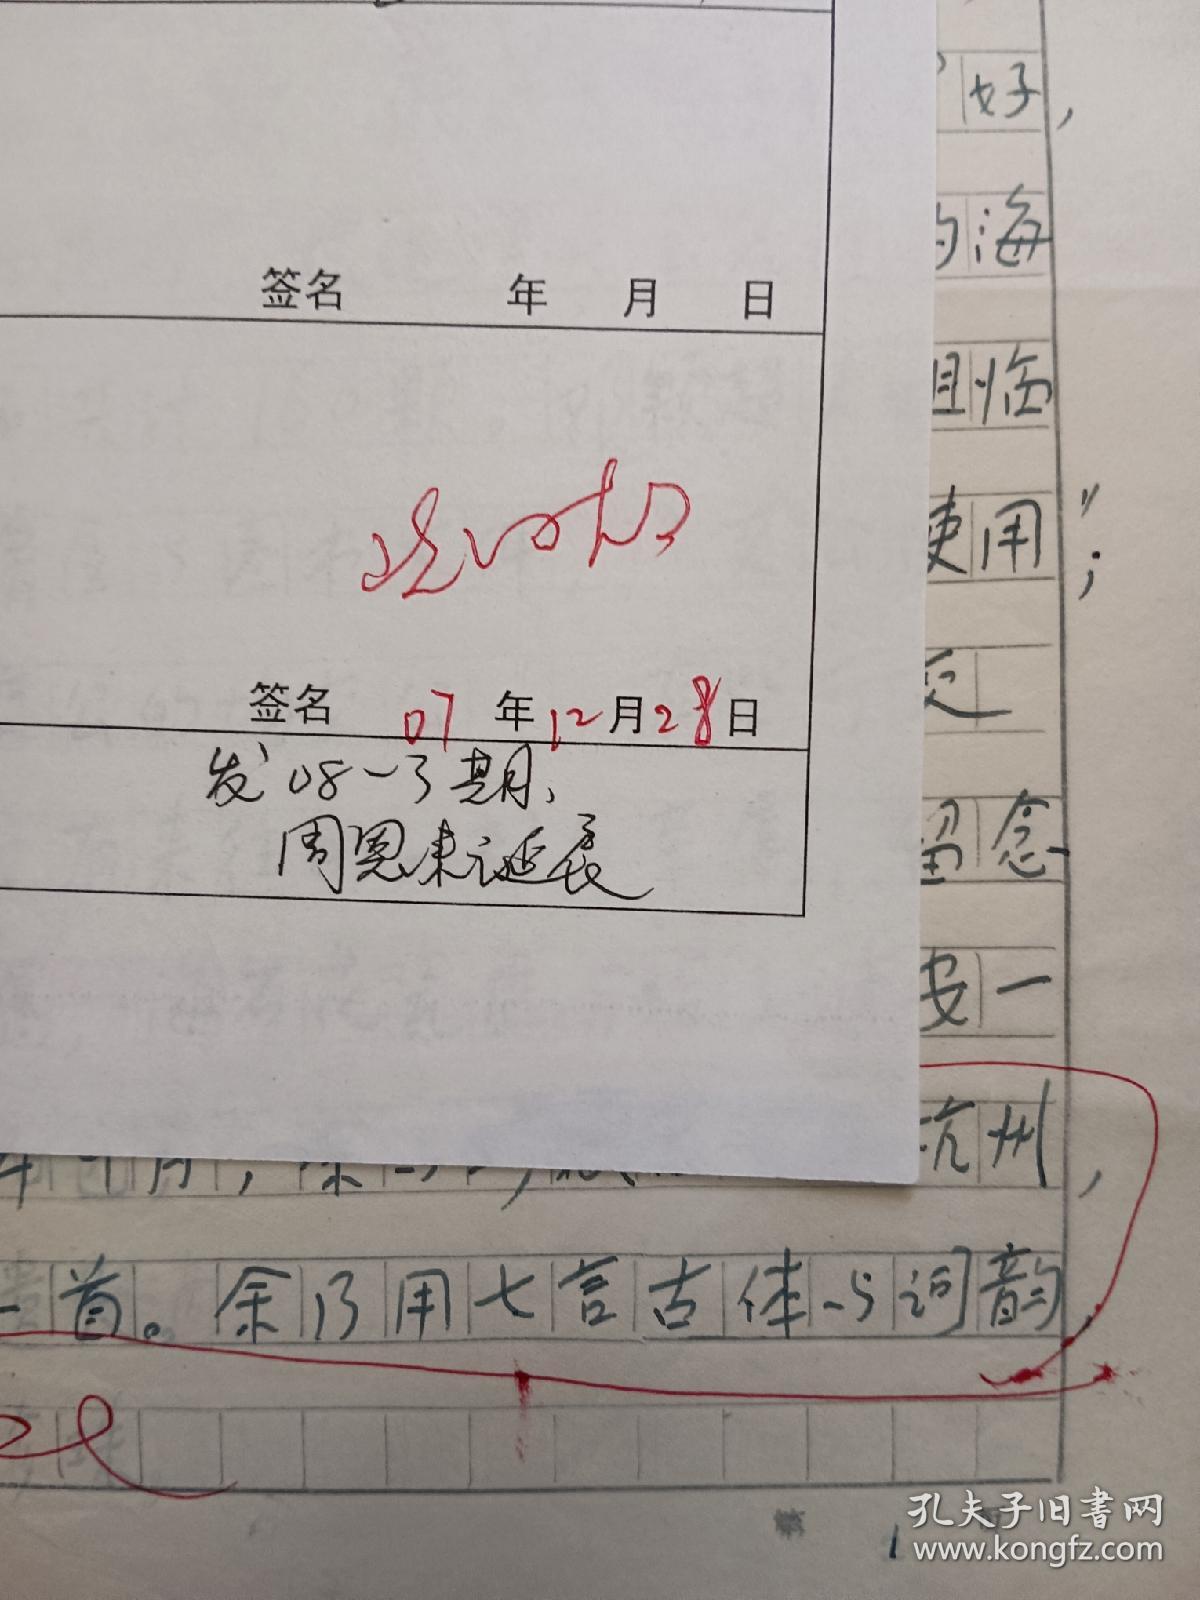 好，
的海
且临
签名 年 月 日
使用"；
签名 07 年 12 月 28 日
发08-3期、
周恩来之延长
留念
安一
杭州，
一首。余乃用七言古体与词韵
1
孔夫子旧书网
www.kongfz.com